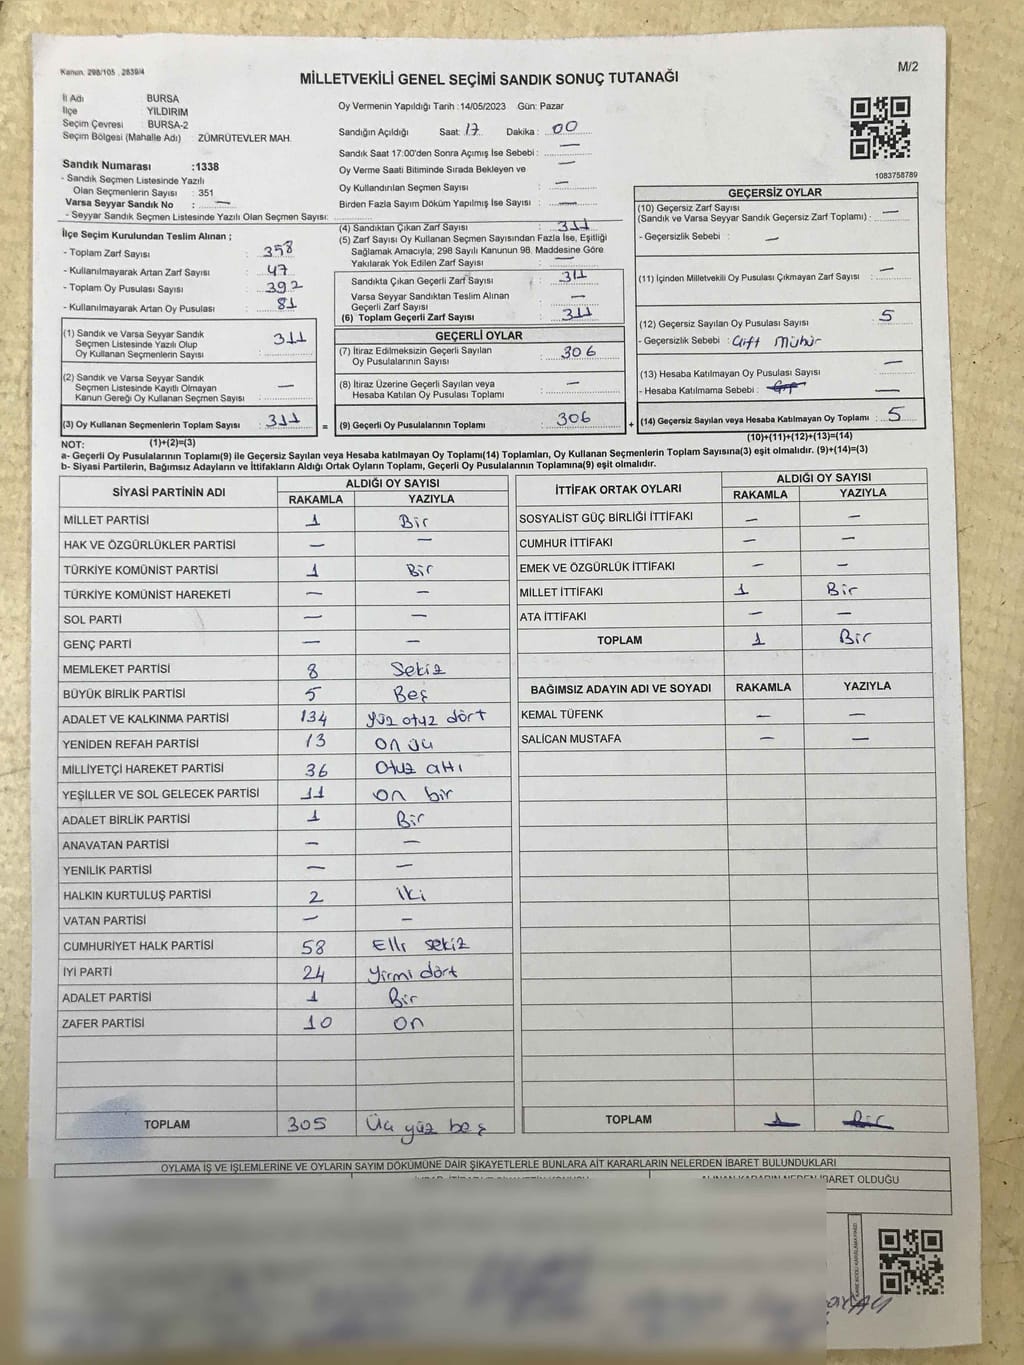 Kanun. 298/105 . 2839/4
M/2
MİLLETVEKİLİ GENEL SEÇİMİ SANDIK SONUÇ TUTANAĞI
İl Adı BURSA
İlçe YILDIRIM
Seçim Çevresi BURSA-2
Seçim Bölgesi (Mahalle Adı) ZÜMRÜTEVLER MAH.
Sandık Numarası :1338
- Sandık Seçmen Listesinde Yazılı
Olan Seçmenlerin Sayısı : 351
Varsa Seyyar Sandık No : —
- Seyyar Sandık Seçmen Listesinde Yazılı Olan Seçmen Sayısı:
Oy Vermenin Yapıldığı Tarih :14/05/2023 Gün: Pazar
Sandığın Açıldığı Saat: 17 Dakika : 00
Sandık Saat 17:00'den Sonra Açımış İse Sebebi : —
Oy Verme Saati Bitiminde Sırada Bekleyen ve —
Oy Kullandırılan Seçmen Sayısı : —
Birden Fazla Sayım Döküm Yapılmış İse Sayısı : —
1083758789
İlçe Seçim Kurulundan Teslim Alınan ;
- Toplam Zarf Sayısı : 358
- Kullanılmayarak Artan Zarf Sayısı : 47
- Toplam Oy Pusulası Sayısı : 392
- Kullanılmayarak Artan Oy Pusulası : 81
(1) Sandık ve Varsa Seyyar Sandık
Seçmen Listesinde Yazılı Olup
Oy Kullanan Seçmenlerin Sayısı : 311
(2) Sandık ve Varsa Seyyar Sandık
Seçmen Listesinde Kayıtlı Olmayan
Kanun Gereği Oy Kullanan Seçmen Sayısı : —
(3) Oy Kullanan Seçmenlerin Toplam Sayısı : 311
(4) Sandıktan Çıkan Zarf Sayısı : 311
(5) Zarf Sayısı Oy Kullanan Seçmen Sayısından Fazla İse, Eşitliği
Sağlamak Amacıyla; 298 Sayılı Kanunun 98. Maddesine Göre
Yakılarak Yok Edilen Zarf Sayısı : —
Sandıkta Çıkan Geçerli Zarf Sayısı : 311
Varsa Seyyar Sandıktan Teslim Alınan
Geçerli Zarf Sayısı : —
(6) Toplam Geçerli Zarf Sayısı : 311
GEÇERLİ OYLAR
(7) İtiraz Edilmeksizin Geçerli Sayılan
Oy Pusulalarının Sayısı : 306
(8) İtiraz Üzerine Geçerli Sayılan veya
Hesaba Katılan Oy Pusulası Toplamı : —
= (9) Geçerli Oy Pusulalarının Toplamı : 306 +
GEÇERSİZ OYLAR
(10) Geçersiz Zarf Sayısı
(Sandık ve Varsa Seyyar Sandık Geçersiz Zarf Toplamı) : —
- Geçersizlik Sebebi : —
(11) İçinden Milletvekili Oy Pusulası Çıkmayan Zarf Sayısı : —
(12) Geçersiz Sayılan Oy Pusulası Sayısı : 5
- Geçersizlik Sebebi : Çift Mühür
(13) Hesaba Katılmayan Oy Pusulası Sayısı : —
- Hesaba Katılmama Sebebi : —
(14) Geçersiz Sayılan veya Hesaba Katılmayan Oy Toplamı : 5
NOT: (1)+(2)=(3)
(10)+(11)+(12)+(13)=(14)
a- Geçerli Oy Pusulalarının Toplamı(9) ile Geçersiz Sayılan veya Hesaba katılmayan Oy Toplamı(14) Toplamları, Oy Kullanan Seçmenlerin Toplam Sayısına(3) eşit olmalıdır. (9)+(14)=(3)
b- Siyasi Partilerin, Bağımsız Adayların ve İttifakların Aldığı Ortak Oyların Toplamı, Geçerli Oy Pusulalarının Toplamına(9) eşit olmalıdır.
SİYASİ PARTİNİN ADI ALDIĞI OY SAYISI
RAKAMLA YAZIYLA
MİLLET PARTİSİ 1 Bir
HAK VE ÖZGÜRLÜKLER PARTİSİ — —
TÜRKİYE KOMÜNİST PARTİSİ 1 Bir
TÜRKİYE KOMÜNİST HAREKETİ — —
SOL PARTİ — —
GENÇ PARTİ — —
MEMLEKET PARTİSİ 8 Sekiz
BÜYÜK BİRLİK PARTİSİ 5 Beş
ADALET VE KALKINMA PARTİSİ 134 yüz otuz dört
YENİDEN REFAH PARTİSİ 13 on üç
MİLLİYETÇİ HAREKET PARTİSİ 36 Otuz altı
YEŞİLLER VE SOL GELECEK PARTİSİ 11 on bir
ADALET BİRLİK PARTİSİ 1 Bir
ANAVATAN PARTİSİ — —
YENİLİK PARTİSİ — —
HALKIN KURTULUŞ PARTİSİ 2 iki
VATAN PARTİSİ — —
CUMHURİYET HALK PARTİSİ 58 Elli sekiz
İYİ PARTİ 24 yirmi dört
ADALET PARTİSİ 1 Bir
ZAFER PARTİSİ 10 On
TOPLAM 305 Üç yüz beş
İTTİFAK ORTAK OYLARI ALDIĞI OY SAYISI
RAKAMLA YAZIYLA
SOSYALİST GÜÇ BİRLİĞİ İTTİFAKI — —
CUMHUR İTTİFAKI — —
EMEK VE ÖZGÜRLÜK İTTİFAKI — —
MİLLET İTTİFAKI 1 Bir
ATA İTTİFAKI — —
TOPLAM 1 Bir
BAĞIMSIZ ADAYIN ADI VE SOYADI RAKAMLA YAZIYLA
KEMAL TÜFENK — —
SALİCAN MUSTAFA — —
TOPLAM 1 Bir
OYLAMA İŞ VE İŞLEMLERİNE VE OYLARIN SAYIM DÖKÜMÜNE DAİR ŞİKAYETLERLE BUNLARA AİT KARARLARIN NELERDEN İBARET BULUNDUKLARI
İBARET OLDUĞU